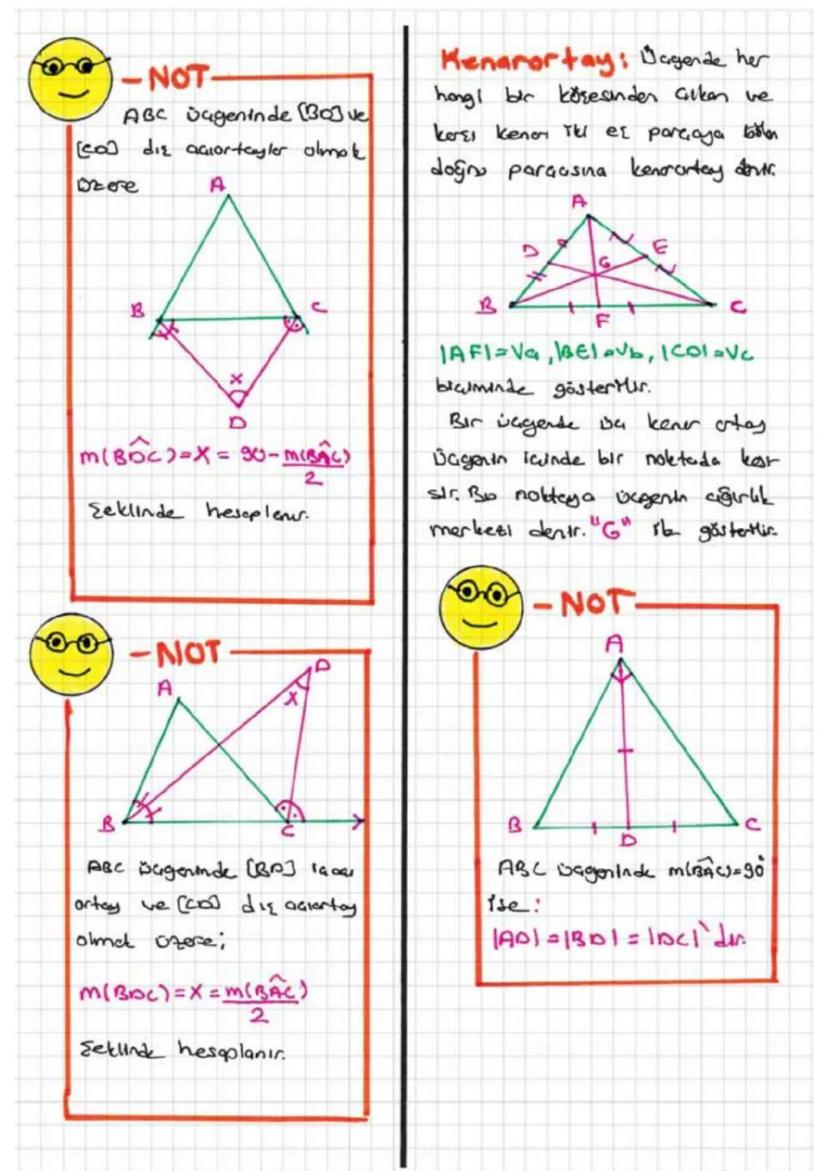 -NOT-
ABC üçgeninde [BD] ve
[CD] dış açıortaylar olmak
üzere
A
B
C
x
D
m(BDC)=x = 90-m(BAC)/2
Şeklinde hesaplanır.
-NOT-
A
D
x
B
C
ABC üçgeninde [BD] iç açı
ortay ve [CD] dış açıortay
olmak üzere;
m(BDC)=x=m(BAC)/2
Şeklinde hesaplanır.
Kenarortay: Üçgende her
hangi bir köşesinden çıkan ve
karşı kenarı iki eş parçaya bölen
doğru parçasına kenarortay denir.
A
D
E
G
B
C
F
|AF|=Va, |BE|=Vb, |CD|=Vc
biçiminde gösterilir.
Bir üçgende üç kenar ortay
üçgenin içinde bir noktada kesi
şir. Bu noktaya üçgenin ağırlık
merkezi denir. "G" ile gösterilir.
-NOT-
A
B
D
C
ABC üçgeninde m(BAC)=90°
ise:
|AD|=|BD|=|DC|'dır.